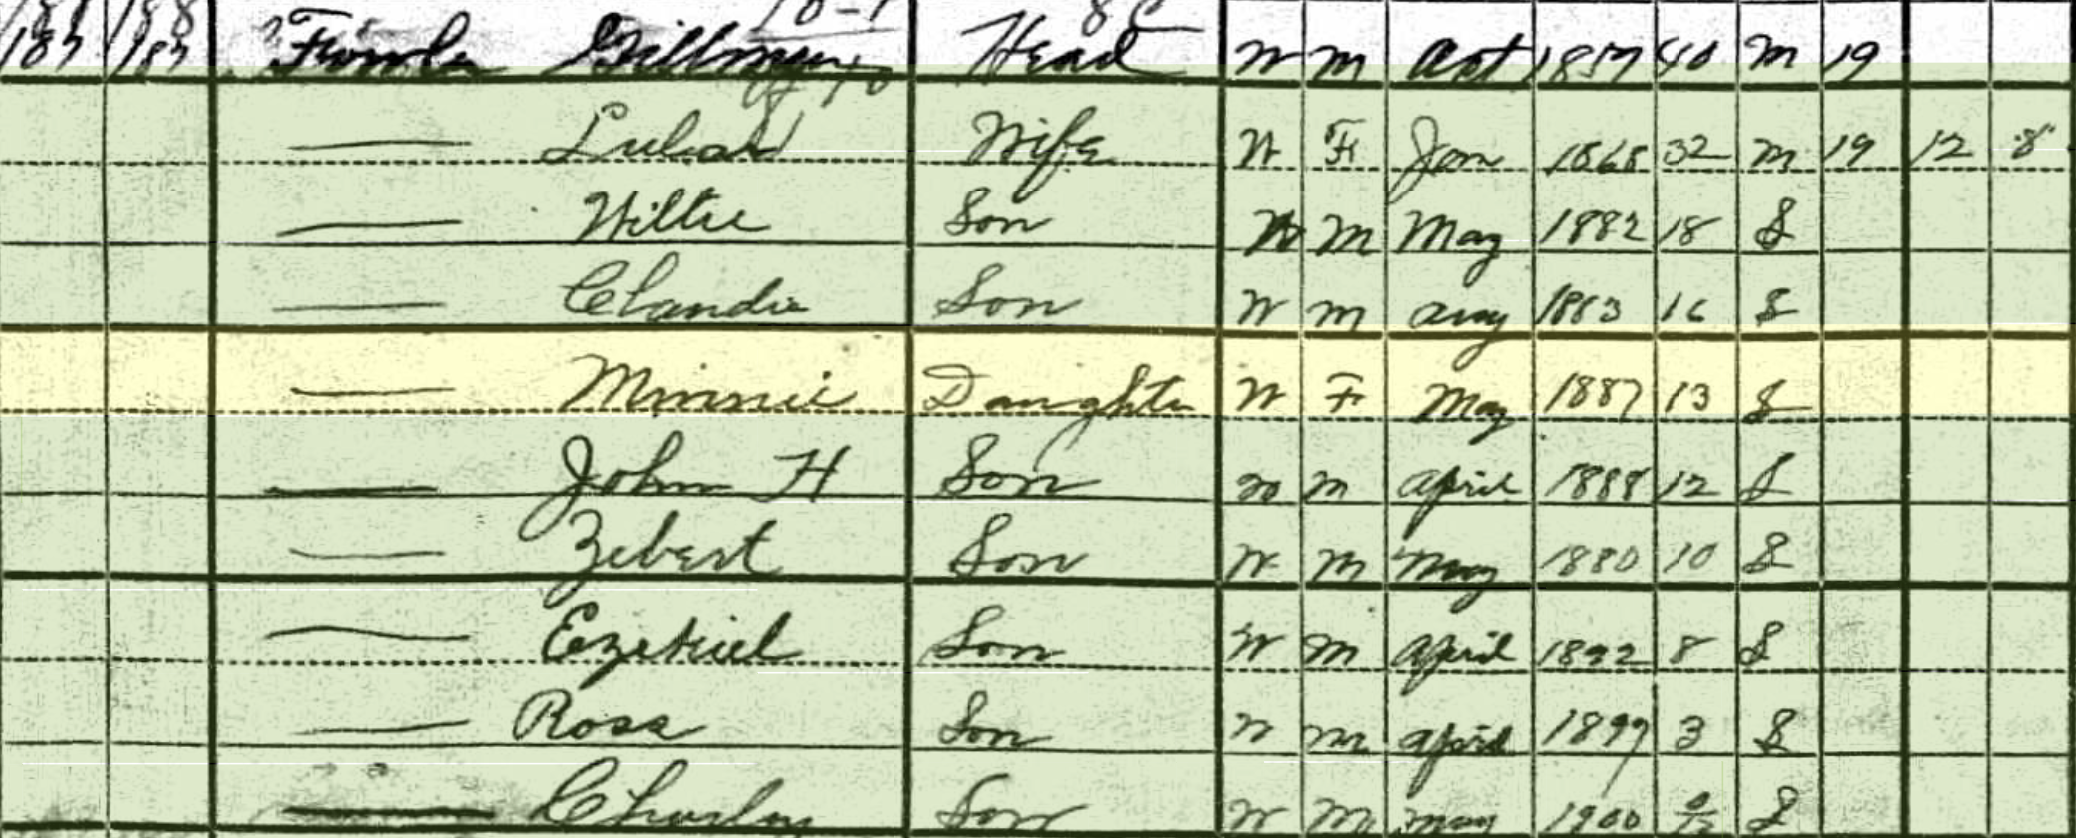 188 188 18-1 8
187 187 Fowler Head W M 1857 40 M 19
— Wife W F Jan 1868 32 M 19 12 8
— Willie Son W M May 1882 18 S
— Claudie Son W M Aug 1883 16 S
— Minnie Daughter W F May 1887 13 S
— John H Son W M April 1888 12 S
— Zebert Son W M May 1880 10 S
— Ezekiel Son W M April 1892 8 S
— Ross Son W M April 1897 3 S
— Charley Son W M May 1900 0/12 S